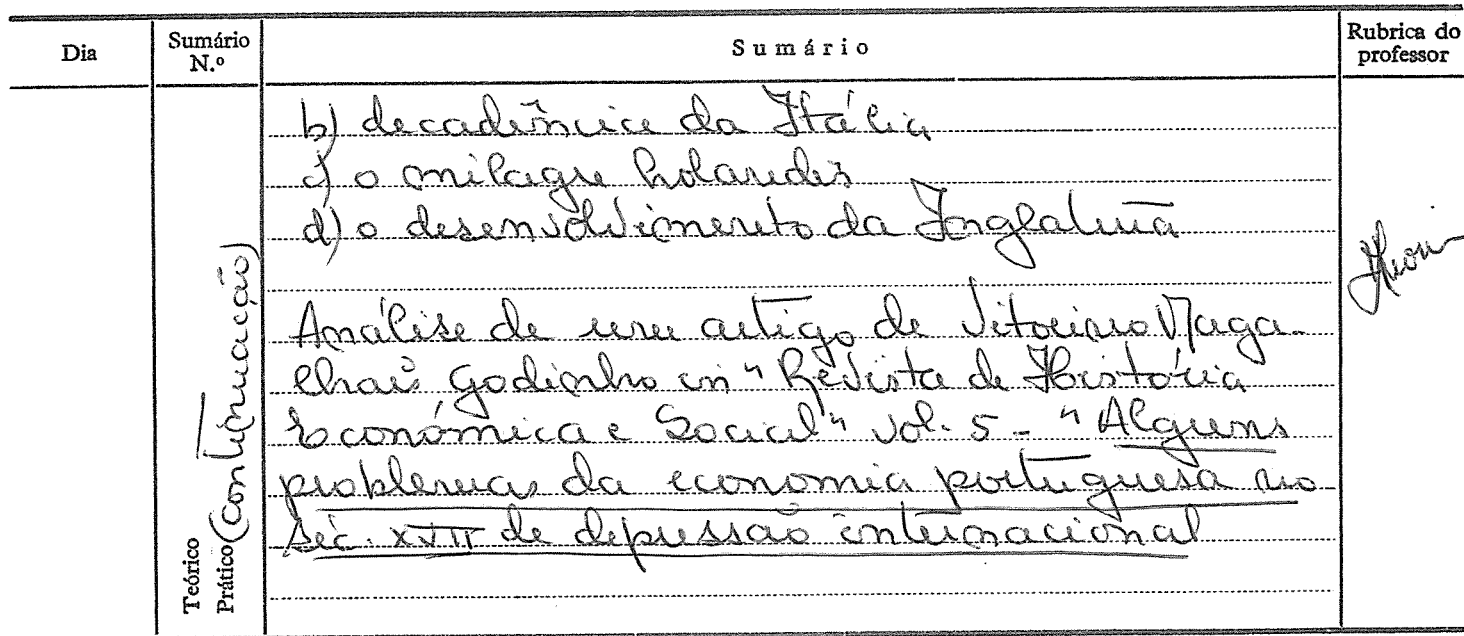 Dia
Sumário N.º
Sumário
Rubrica do professor
Teórico
Prático (Continuação)
b) decadência da Itália
c) o milagre holandês
d) o desenvolvimento da Inglaterra
Análise de um artigo de Vitorino Maga-
lhães Godinho in "Revista de História
Económica e Social" vol. 5 - "Alguns
problemas da economia portuguesa no
séc. XVII de depressão internacional